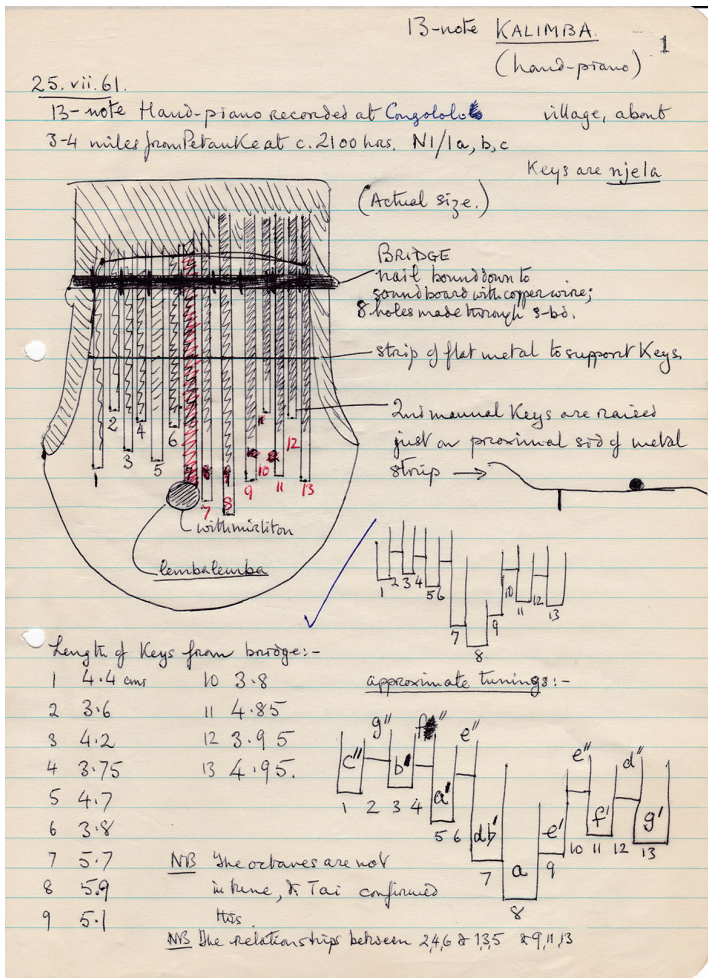 13-note KALIMBA.
1
(hand-piano)
25.vii.61.
13-note Hand-piano recorded at Congololo village, about
3-4 miles from Petauke at c. 2100 hrs. N1/1a, b, c
Keys are njela
(Actual size.)
BRIDGE
nail bound down to
soundboard with copper wire;
8 holes made through s-bd.
strip of flat metal to support Keys
2nd manual Keys are raised
just on proximal side of metal
strip
1 2 3 4 5 6 7 8 9 10 11 12 13
with mirliton
lembalemba
1 2 3 4 5 6 7 8 9 10 11 12 13
Length of Keys from bridge:-
1 4.4 cms
2 3.6
3 4.2
4 3.75
5 4.7
6 3.8
7 5.7
8 5.9
9 5.1
10 3.8
11 4.85
12 3.95
13 4.95.
approximate tunings:-
c" g" b' f" a' e" db' a e' e" f' d" g'
1 2 3 4 5 6 7 8 9 10 11 12 13
NB The octaves are not
in tune, & Tai confirmed
this.
NB The relationships between 2,4,6 & 1,3,5 & 9,11,13